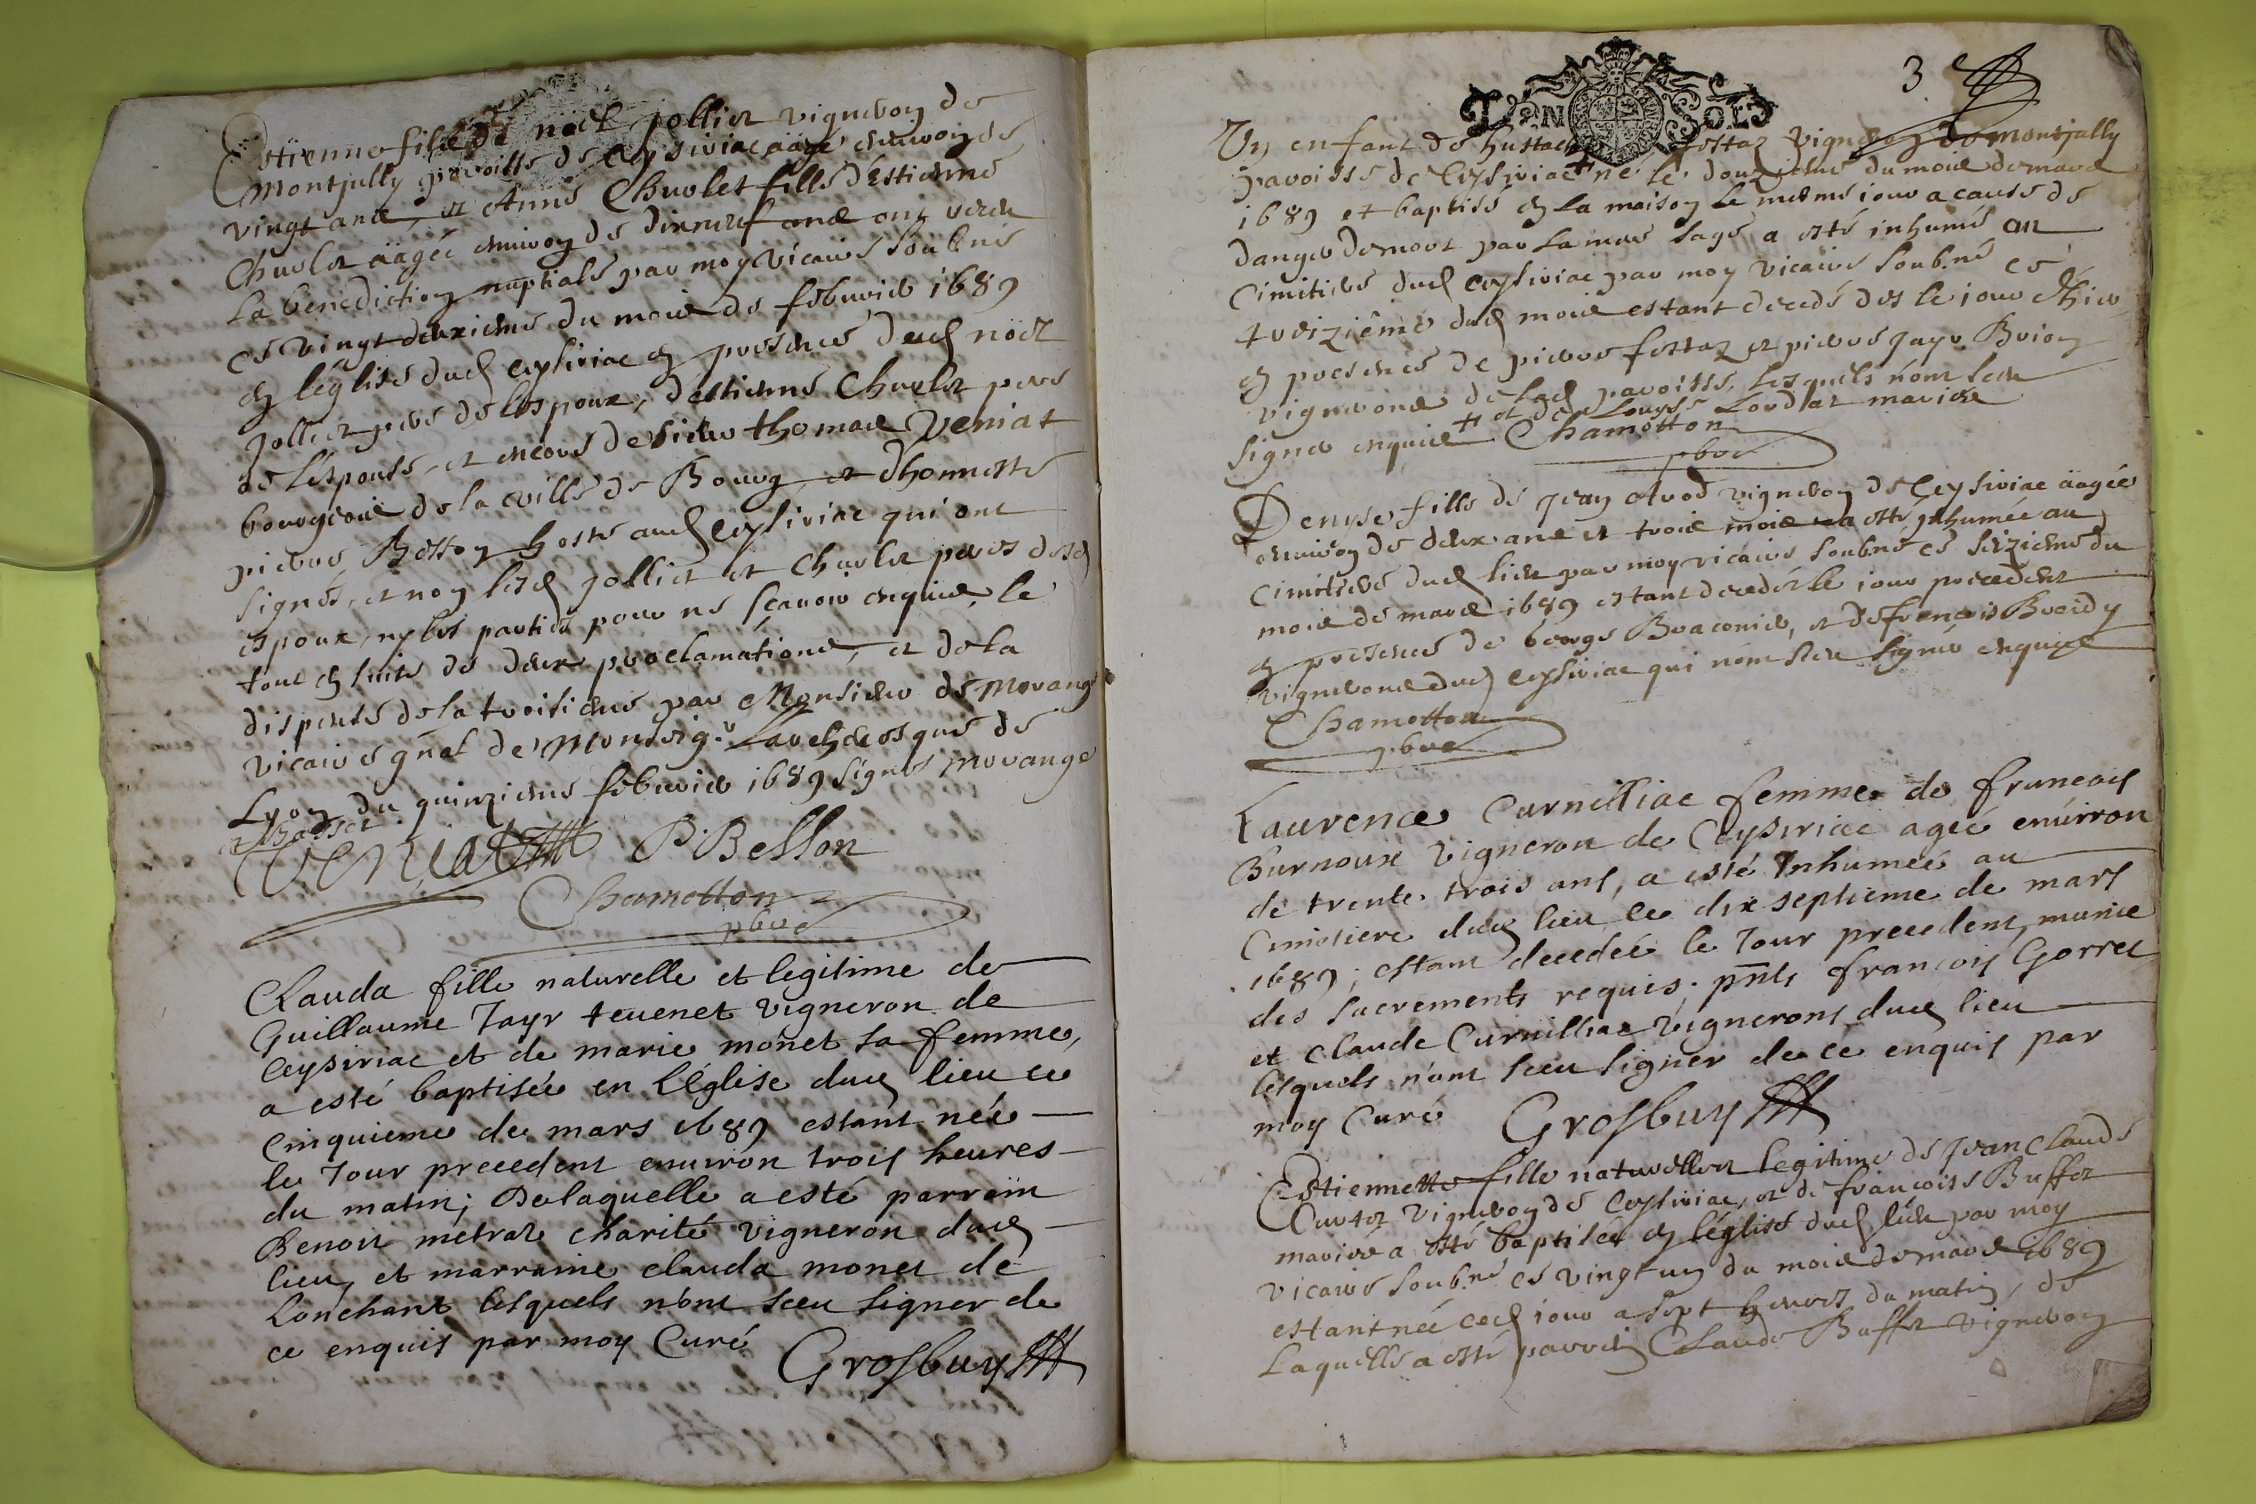 Estienne fils de noel jollier vigneron de
Montjully paroisse de Ceysiriac aagé environ de
vingt ans, et Anne Charlet fille d'Estienne
Charlet aagée environ de dixneuf ans ont receu
la benediction nuptiale par moy vicaire soubné
ce vingt deuxieme du mois de febvrier 1689
en l'église dud ceysiriac en presence dud noël
jollier pere de lespoux, d'estienne Charlet pere
de lespouse, et encore de sieur thomas Veniat
bourgeois de la ville de Bourg, et d'honneste
pierre Bellon hoste aud ceysiriac qui ont
signés, et non lesd jollier et Charlet peres desd
espoux, ny les parties pour ne sçavoir enquis, le
tout en suite de deux proclamations, et de la
dispense de la troisieme par Monsieur de Morange
vicaire gñal de Monseigr Larchevesque de
Lyon du quinzieme febvrier 1689 signés Morange
et Basset
Veniat P. Bellon
Chamotton
pbre
Clauda fille naturelle et legitime de
Guillaume Jayr tevenet vigneron de
Ceysiriac et de marie monet sa femme,
a esté baptisée en l'Église dud lieu ce
Cinquieme de mars 1689 estant née
le Jour precedent environ trois heures
du matin; De laquelle a esté parrain
Benoit metral charité vigneron dud
lieu, et marraine clauda monet de
Lonchant lesquels nont sceu signer de
ce enquis par moy Curé
Grosbuy
3
VN SOL
Un enfant de hustache fettaz vigneron de Montjully
paroisse de Ceysiriac + né le douzieme du mois de mars
1689 et baptisé en la maison le mesme iour a cause de
danger de mort par la mere sage a esté inhumé au
Cimitiere dud ceysiriac par moy vicaire soubné ce
treizième dud mois estant decedé des le iour d'hier
en presence de pierre fettaz et pierre Jayr Brion
vignerons de lad paroisse, lesquels n'ont sceu
signer enquis + et de Louyse Lordaz mariée
Chamotton
pbre
Denyse fille de Jean Avod vigneron de Ceysiriac aagée
environ de deux ans et trois mois a esté inhumée au
Cimitiere dud lieu par moy vicaire soubné ce seizieme du
mois de mars 1689 estant decedée le iour precedent
en presence de george Braconier, et de francois Breidy
vignerons dud ceysiriac qui n'ont sceu signer enquis
Chamotton
pbre
Laurence Curnilliac femme de francois
Burnoux vigneron de Ceysiriac agée environ
de trente trois ans, a esté Inhumée au
Cimetiere dud lieu ce dix septieme de mars
1689; estant decedée le Jour precedent, munie
des sacrements requis; pnts francois Gorret
et Claude Curnilliac vignerons dud lieu
lesquels n'ont sceu signer de ce enquis par
moy Curé Grosbuy
Estiennette fille naturelle et legitime de Jean Claude
Curtez vigneron de ceysiriac, et de francoise Buffet
mariée a esté baptisée en l'église dud lieu par moy
vicaire soubné ce vingt un du mois de mars 1689
estant née ced iour a sept heures du matin, de
Laquelle a esté parrein Claude Buffet vigneron